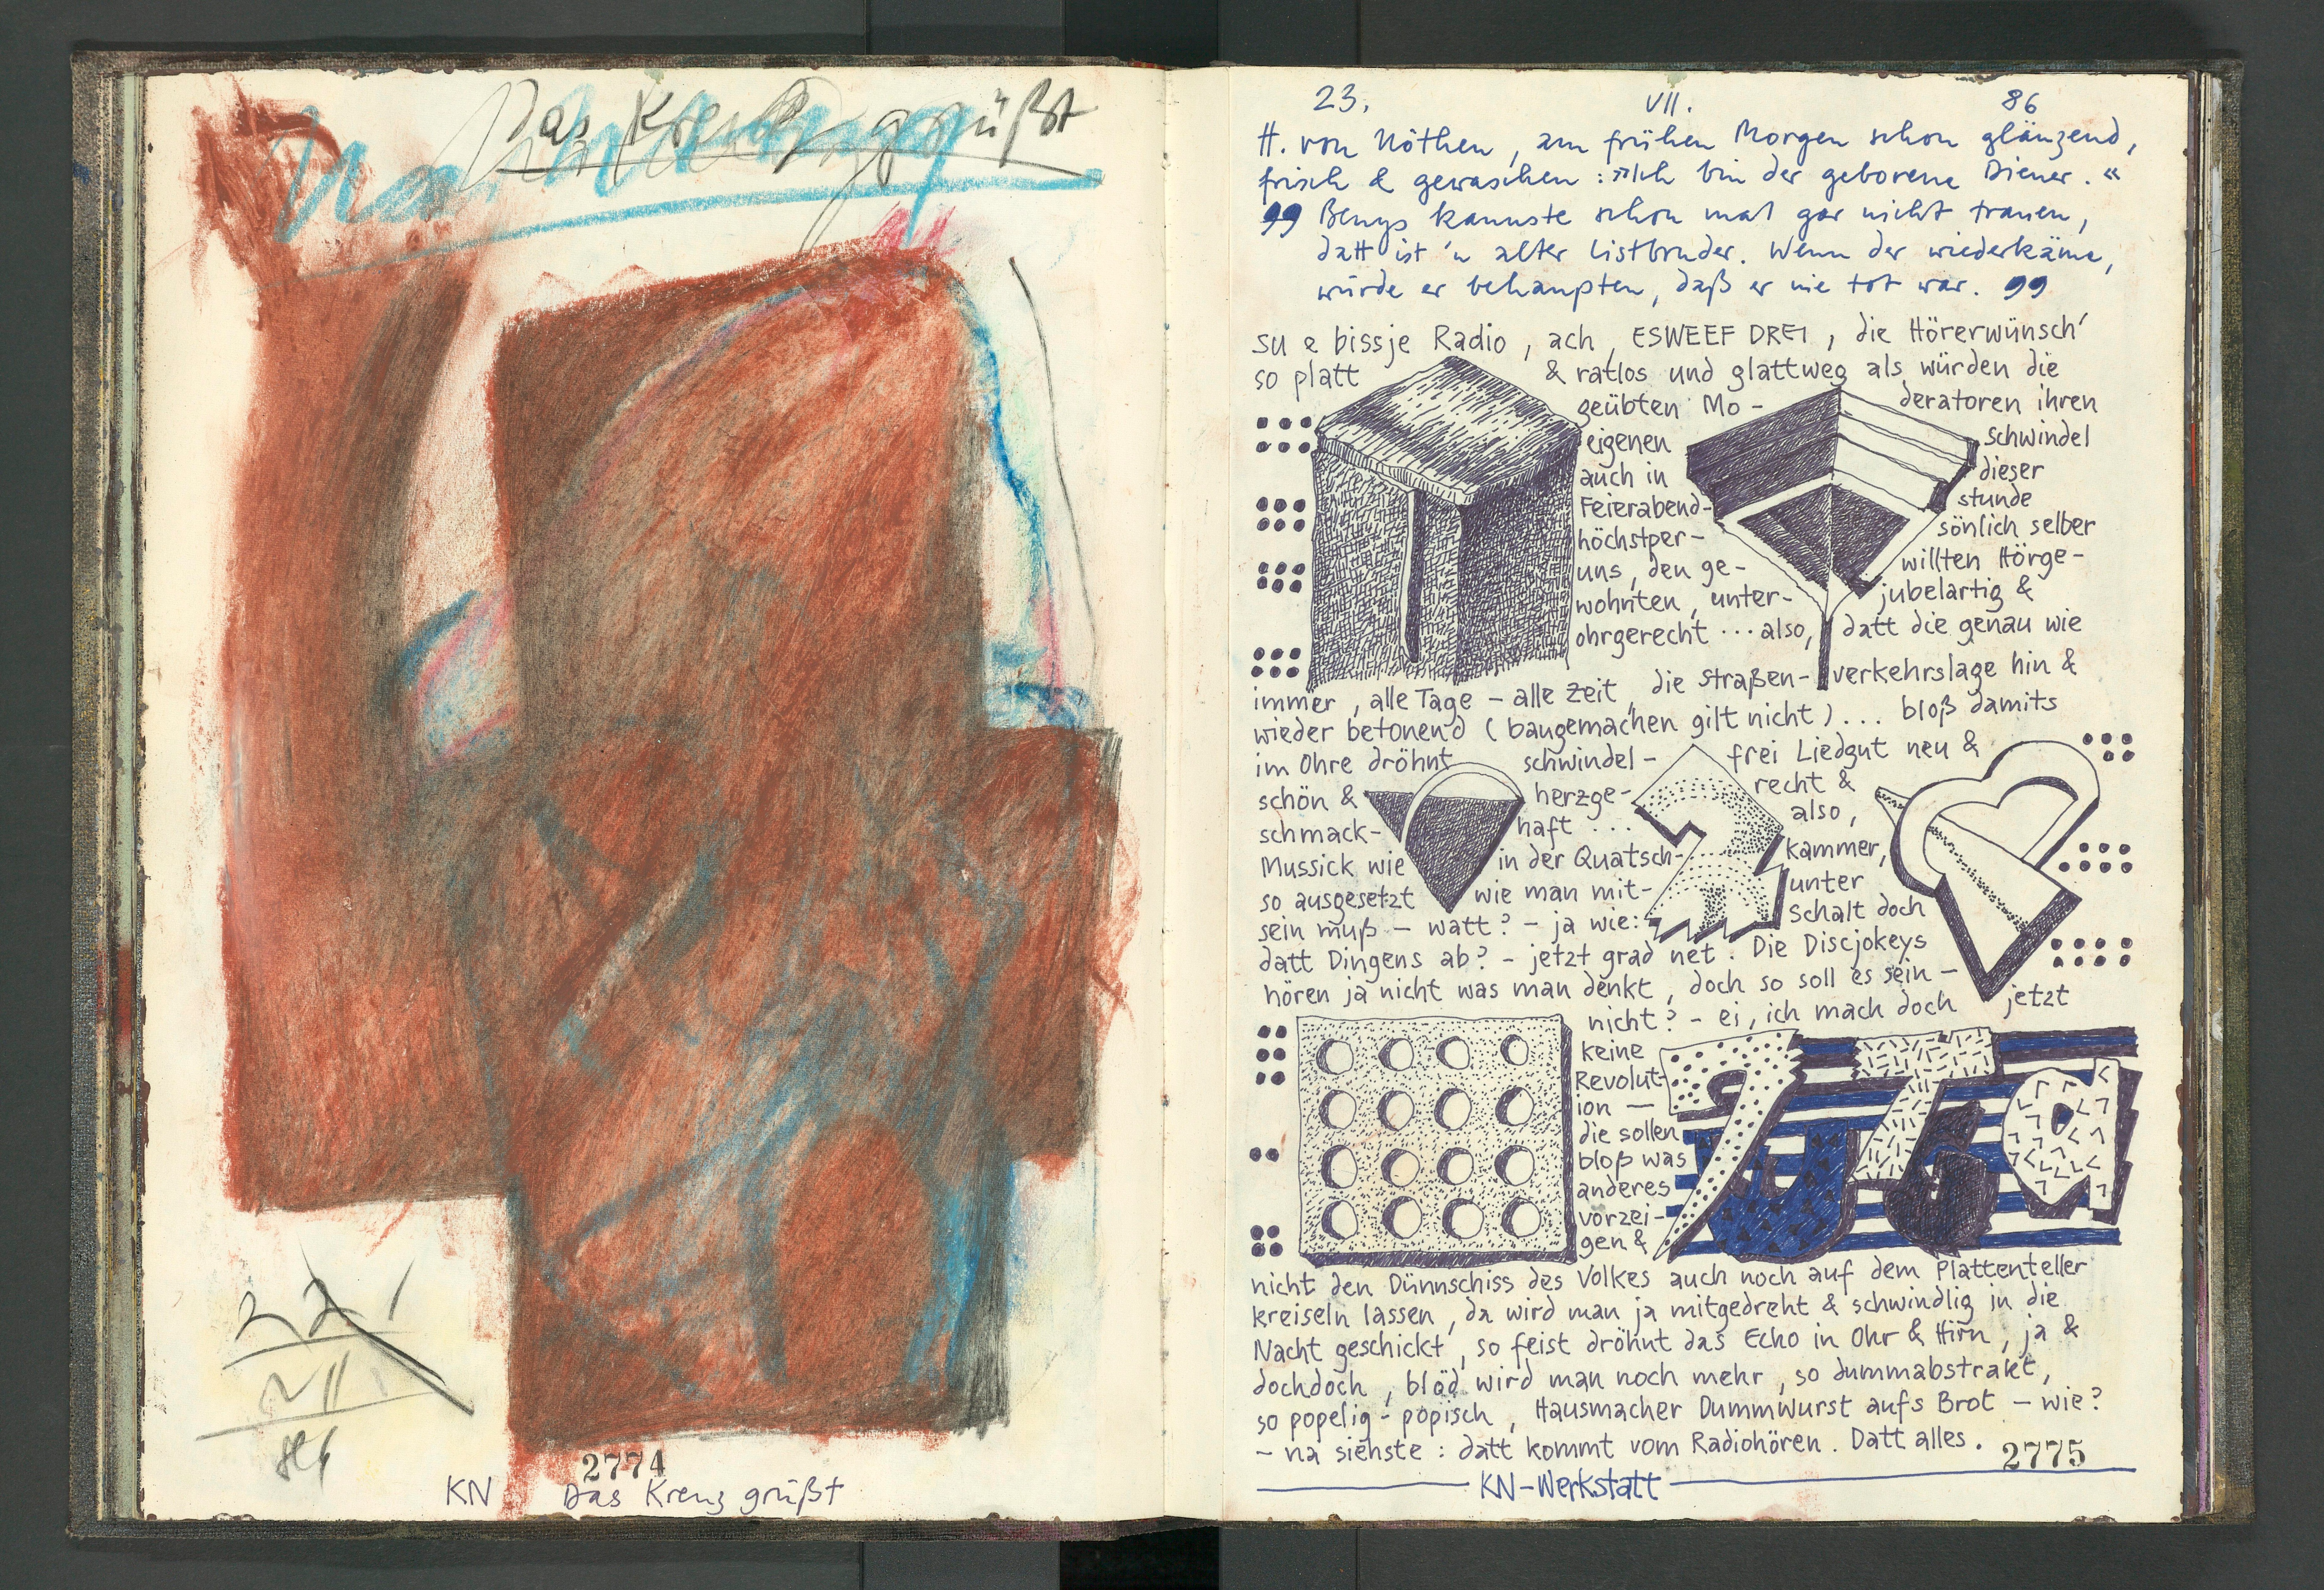 Das Kreuz grüßt
22
VII
86
2774
KN Das Kreuz grüßt
23. VII. 86
H. von Nöthen, am frühen Morgen schon glänzend,
frisch & gewaschen: »Ich bin der geborene Diener.«
„ Beuys kannste schon mal gar nicht trauen,
datt ist 'n alter Listbruder. Wenn der wiederkäme,
würde er behaupten, daß er nie tot war. „
su e bissje Radio, ach, ESWEEF DREI, die Hörerwünsch'
so platt & ratlos und glattweg als würden die
geübten Mo- deratoren ihren
eigenen schwindel
auch in dieser
Feierabend- stunde
höchstper- sönlich selber
uns, den ge- willten Hörge-
wohnten, unter- jubelartig &
ohrgerecht ... also, datt die genau wie
immer, alle Tage - alle Zeit, die straßen- verkehrslage hin &
wieder betonend (baugemachen gilt nicht) ... bloß damits
im Ohre dröhnt schwindel- frei Liedgut neu &
schön & herzge- recht &
schmack- haft ... also,
Mussick wie in der Quatsch- kammer,
so ausgesetzt wie man mit- unter
sein muß - watt? - ja wie: schalt doch
datt Dingens ab? - jetzt grad net. Die Discjokeys
hören ja nicht was man denkt, doch so soll es sein -
nicht? - ei, ich mach doch jetzt
keine
Revolut
ion —
die sollen
bloß was
anderes
vorzei-
gen &
nicht den Dünnschiss des Volkes auch noch auf dem Plattenteller
kreiseln lassen, da wird man ja mitgedreht & schwindlig in die
Nacht geschickt, so feist dröhnt das Echo in Ohr & Hirn, ja &
dochdoch, blöd wird man noch mehr, so dummabstrakt,
so popelig-popisch, Hausmacher Dummwurst aufs Brot - wie?
- na siehste: datt kommt vom Radiohören. Datt alles.
2775
KN-Werkstatt